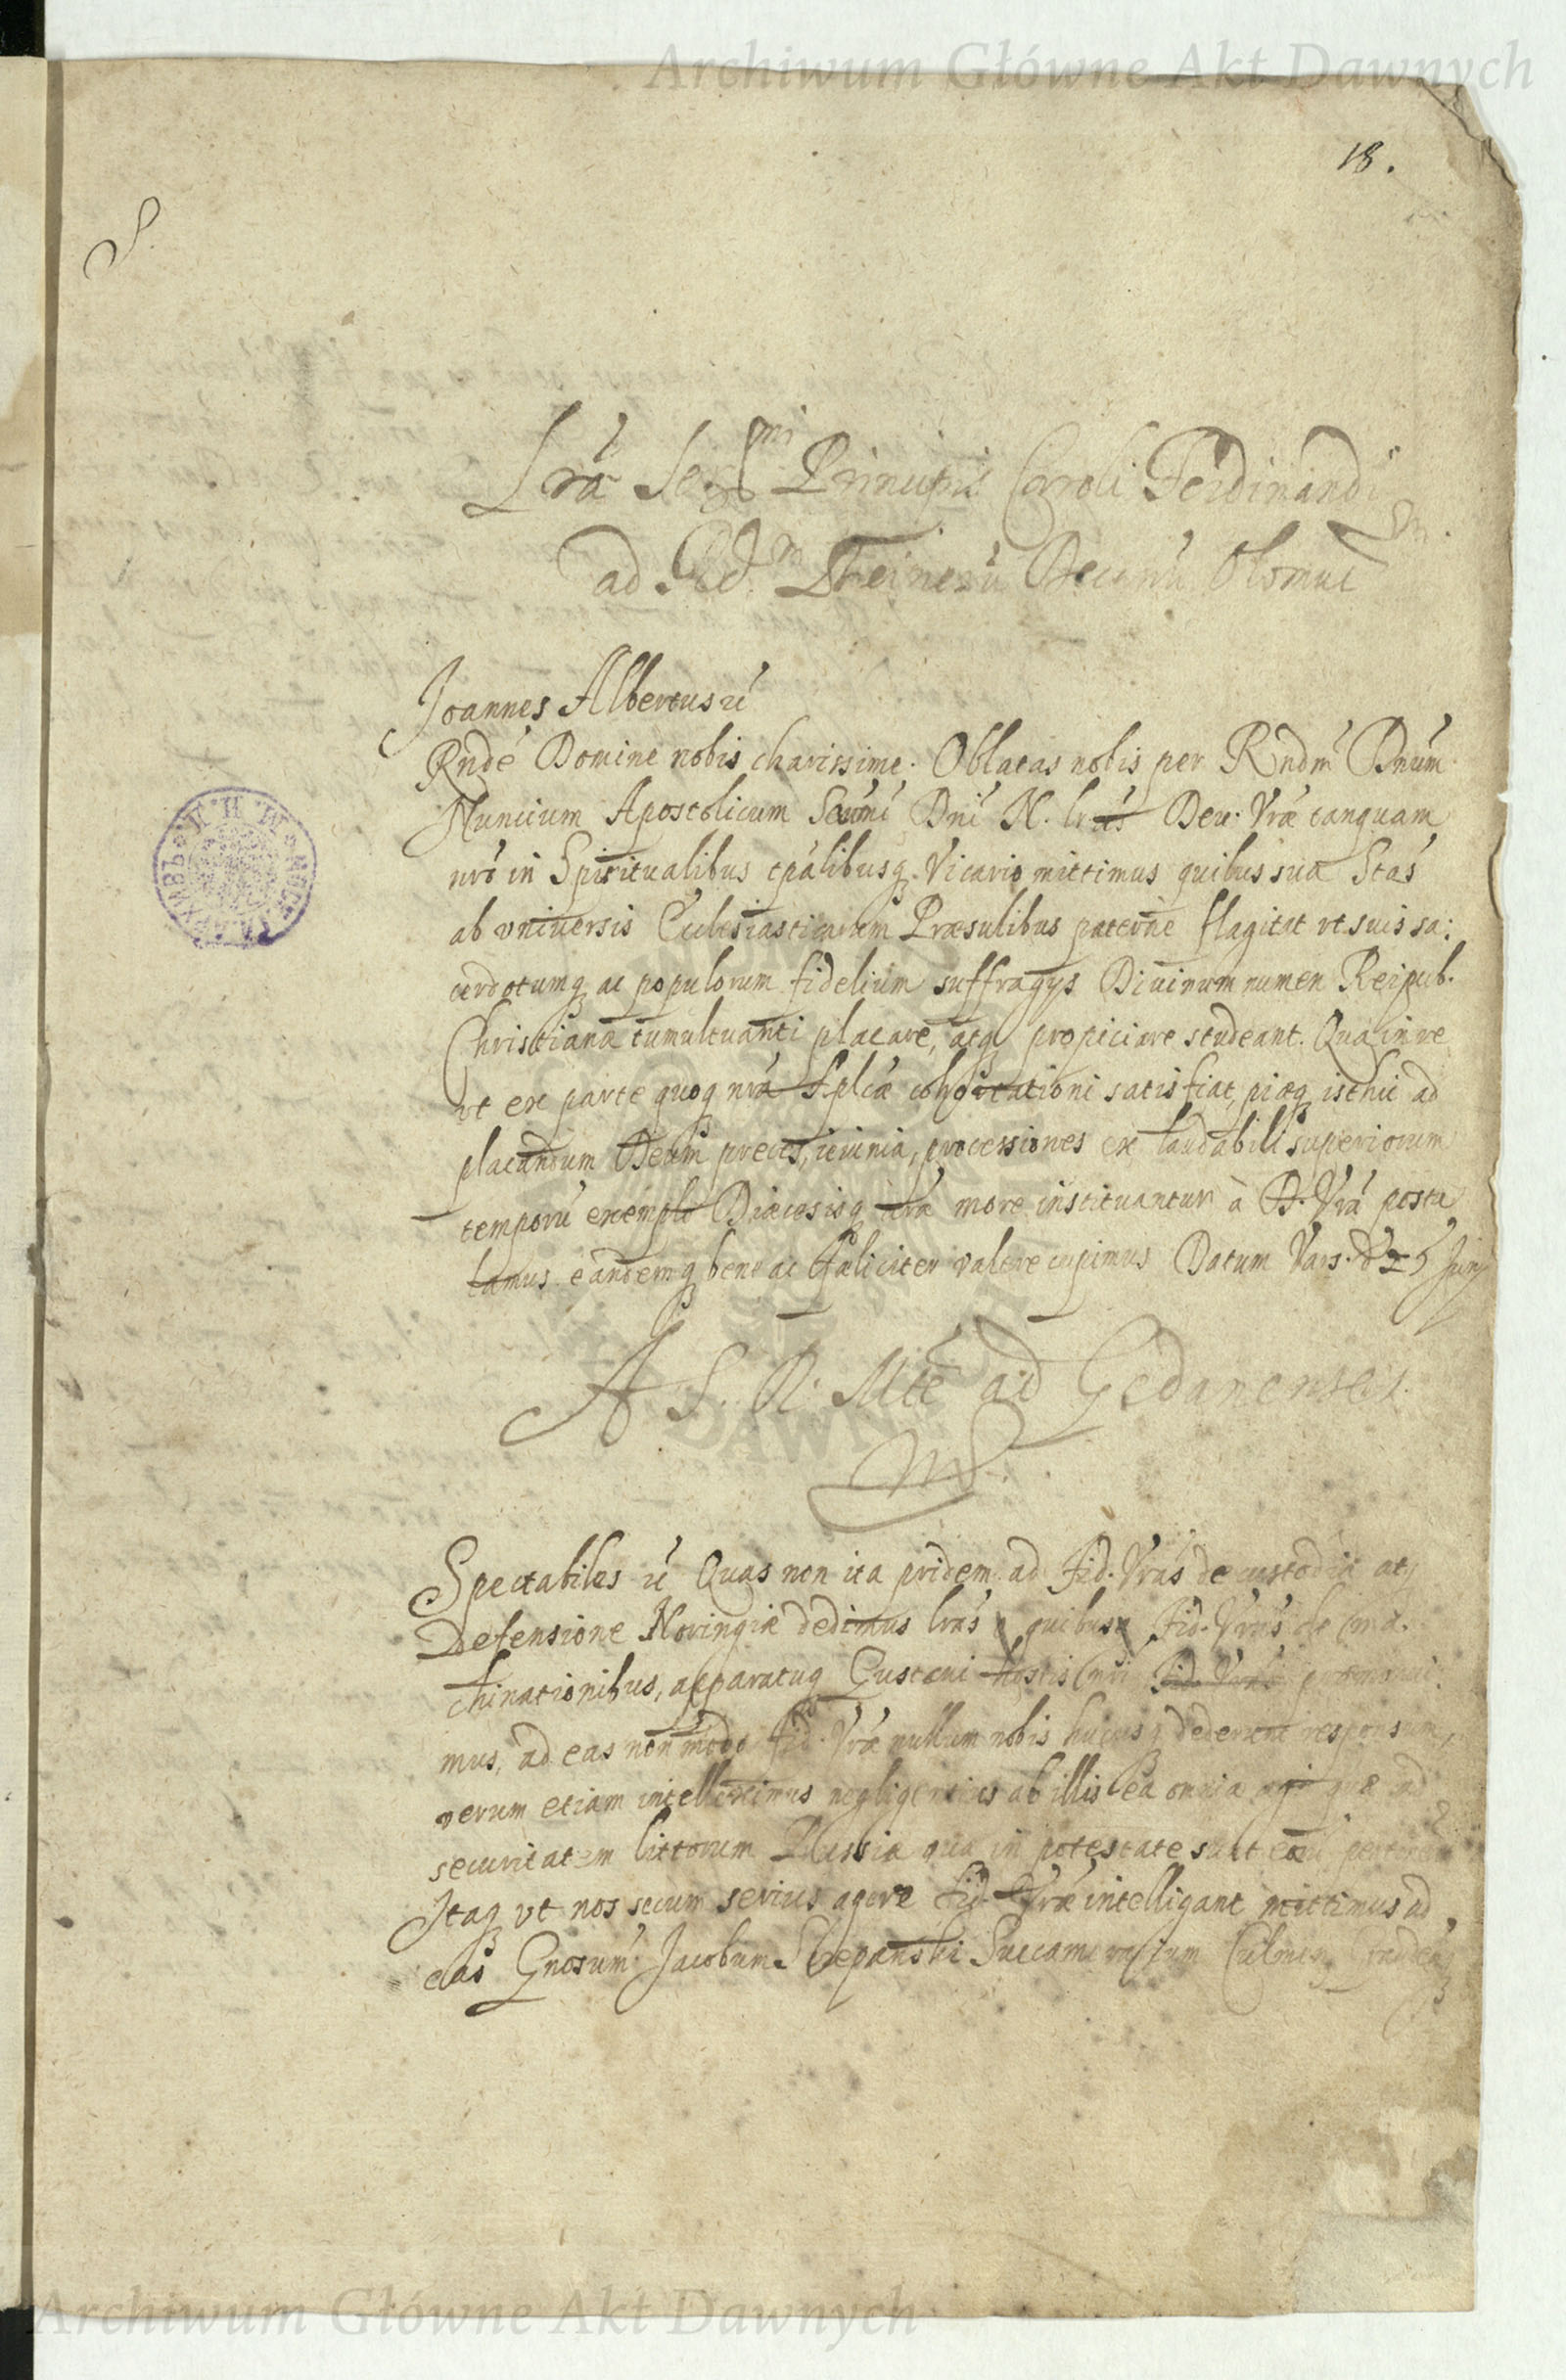 Archiwum Główne Akt Dawnych
18.
S.
Lrã Ser^mi Principis Caroli Ferdinandi
ad Rd^m Decanũ Olomuc
Joannes Albertus
Rndé Domine nobis charissime. Oblatas nobis per Rndm̃ Dnũm
Nuncium Apostolicum Dnĩ N. lrãs Dev. Vrãe tanquam
nrõ in Spiritualibus tpãlibusq. Vicario mittimus quibus sua Stas
ab vniuersis Ecclesiasticarum Præsulibus paterne flagitat vt suis sa:
cerdotumq ac populorum fidelium suffragys Diuinum numen Reipub.
Christianæ tumultuanti placare, atq propiciare studeant. Qua in re
vt ex parte quoq nrã Aplcæ cohortationi satisfiat, piæq isthic ad
placandum Deum preces, ieiunia, processiones ex laudabili superiorum
temporũ exemplo Diœcesisq more instituantur à D. Vrã postu
lamus eandemq bene ac fœliciter valere cupimus Datum Vars. d 25 Juny
A S. R. Mtẽ ad Gedanenses.
Spectabiles Quas non ita pridem ad Fid. Vrãs de custodia atq
Defensione Noringiæ dedimus lrãs quibus Fid. Vrãs de ma.
chinationibus, apparatuq Gustaui hostis nri præmonui:
mus, ad eas non modo Fid. Vræ nullum nobis hucusq dederunt responsum,
verum etiam intelleximus negligentius ab illis ea omnia agi quæ ad
securitatem littorum Prussiæ quæ in potestate sunt
Itaq vt nos secum serius agere Fid. Vræ intelligant mittimus ad
eas Gnosum Jacobum Szczepanski Succamerarium Culmen
Archiwum Główne Akt Dawnych